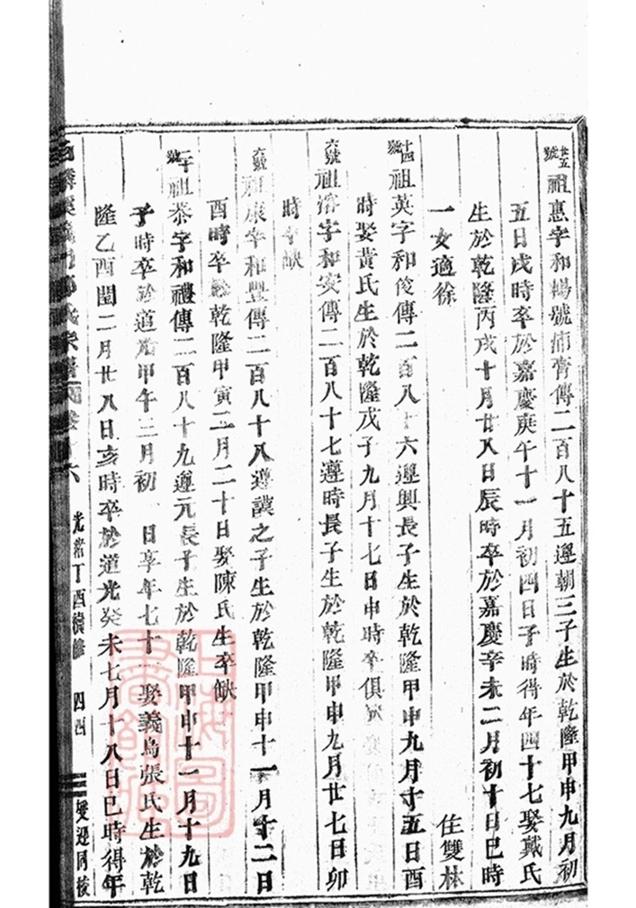 廿五號祖惠字和暢號痛膏傳二百八十五遵朝三子生於乾隆甲申九月初
五日戌時卒於嘉慶庚午十一月初四日子時得年四十七娶戴氏
生於乾隆丙戌十月廿八日辰時卒於嘉慶辛未二月初十日巳時
一女適徐 住雙林
十四號祖英字和俊傳二百八十六遵興長子生於乾隆甲申九月廿五日酉
時娶黃氏生於乾隆戊子九月十七日申時卒俱
六號祖溶字和安傳二百八十七遵時長子生於乾隆甲申九月廿七日卯
時卒缺
六號祖康字和豐傳二百八十八遵謨之子生於乾隆甲申十一月十二日
酉時卒於乾隆甲寅二月二十日娶陳氏生卒缺
二十號祖恭字和禮傳二百八十九遵元長子生於乾隆甲申十一月十九日
子時卒於道光甲午三月初 日享年七十一娶義烏張氏生於乾
隆乙酉閏二月廿八日亥時卒於道光癸未七月十八日巳時得年
氏宗譜 卷十六 光緒丁酉續修 四四 雙迎同校